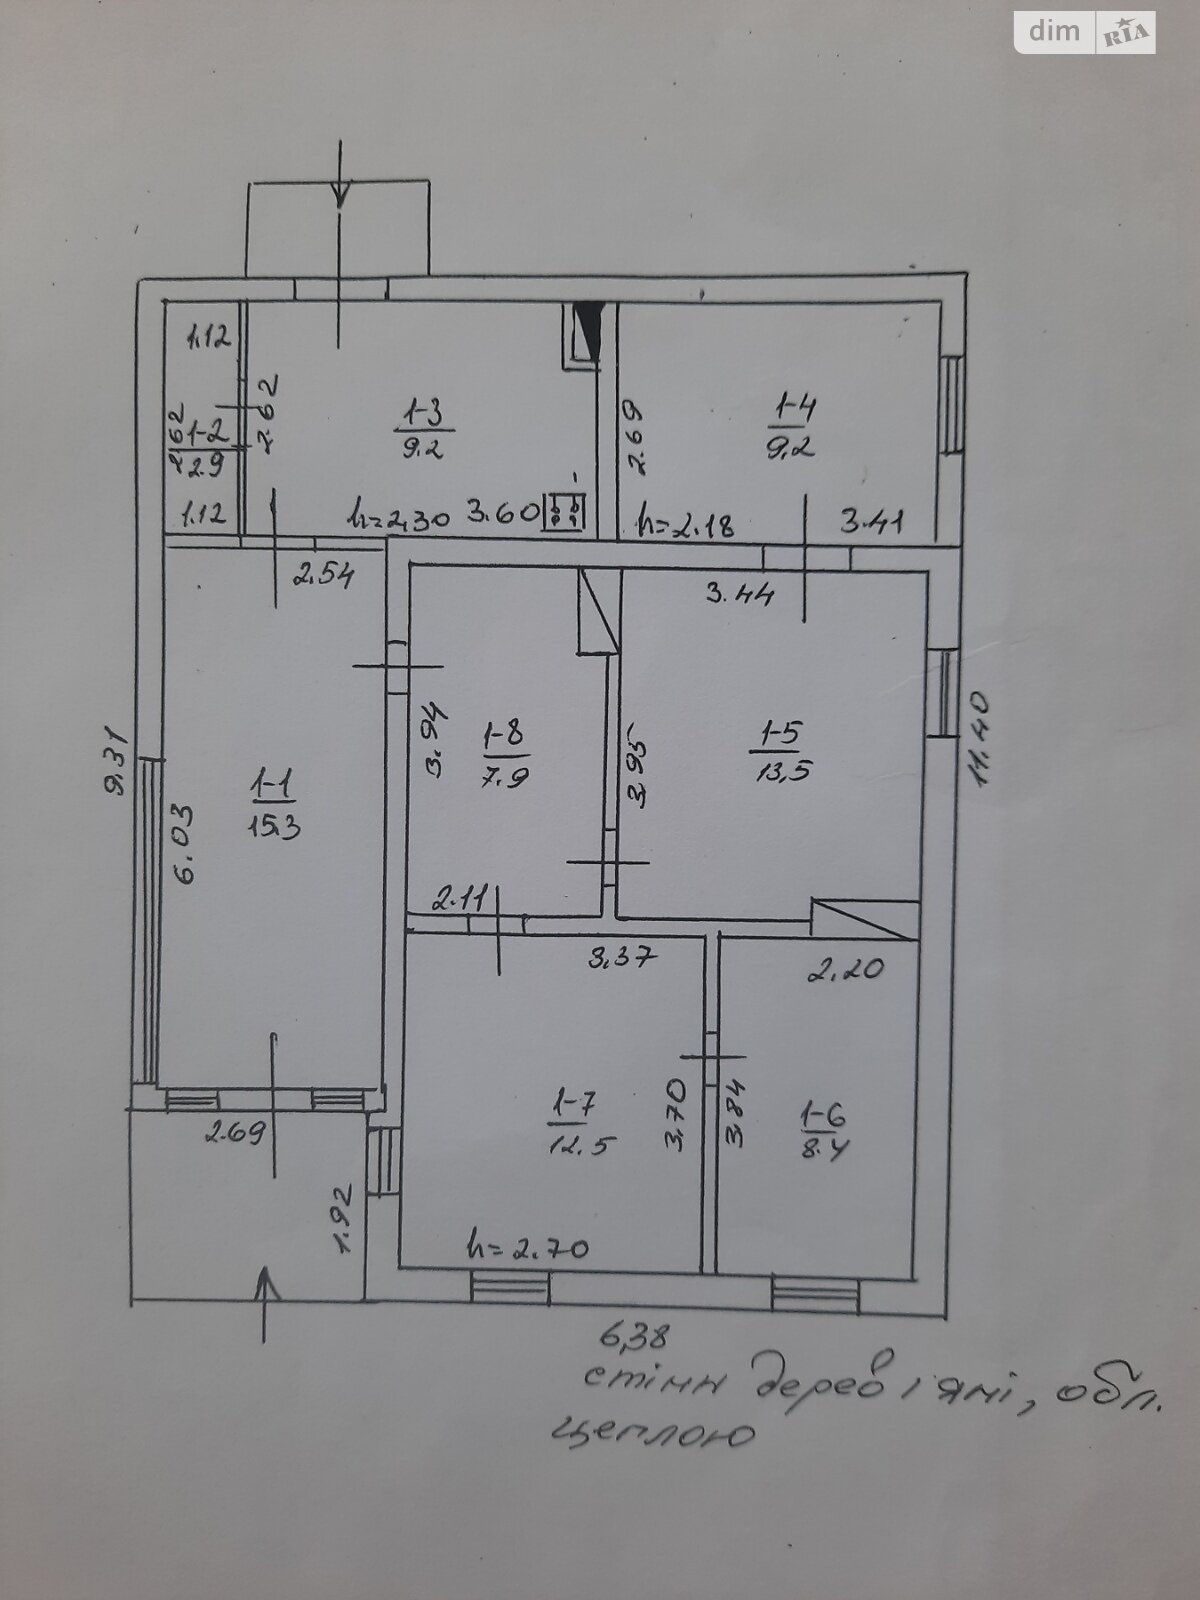 dim RIA
1.12
2.62
1-2
2.9
1.12
2.62
1-3
9.2
h=2.30
3.60
2.69
1-4
9,2
h=2.18
3.41
2.54
3.44
9.31
6.03
1-1
15.3
3.94
1-8
7.9
2.11
3.95
1-5
13,5
11.40
3.37
2.20
2.69
1.92
1-7
12.5
3.70
3.84
1-6
8.4
h=2.70
6,38
стіни дерев'яні, обл.
цеглою